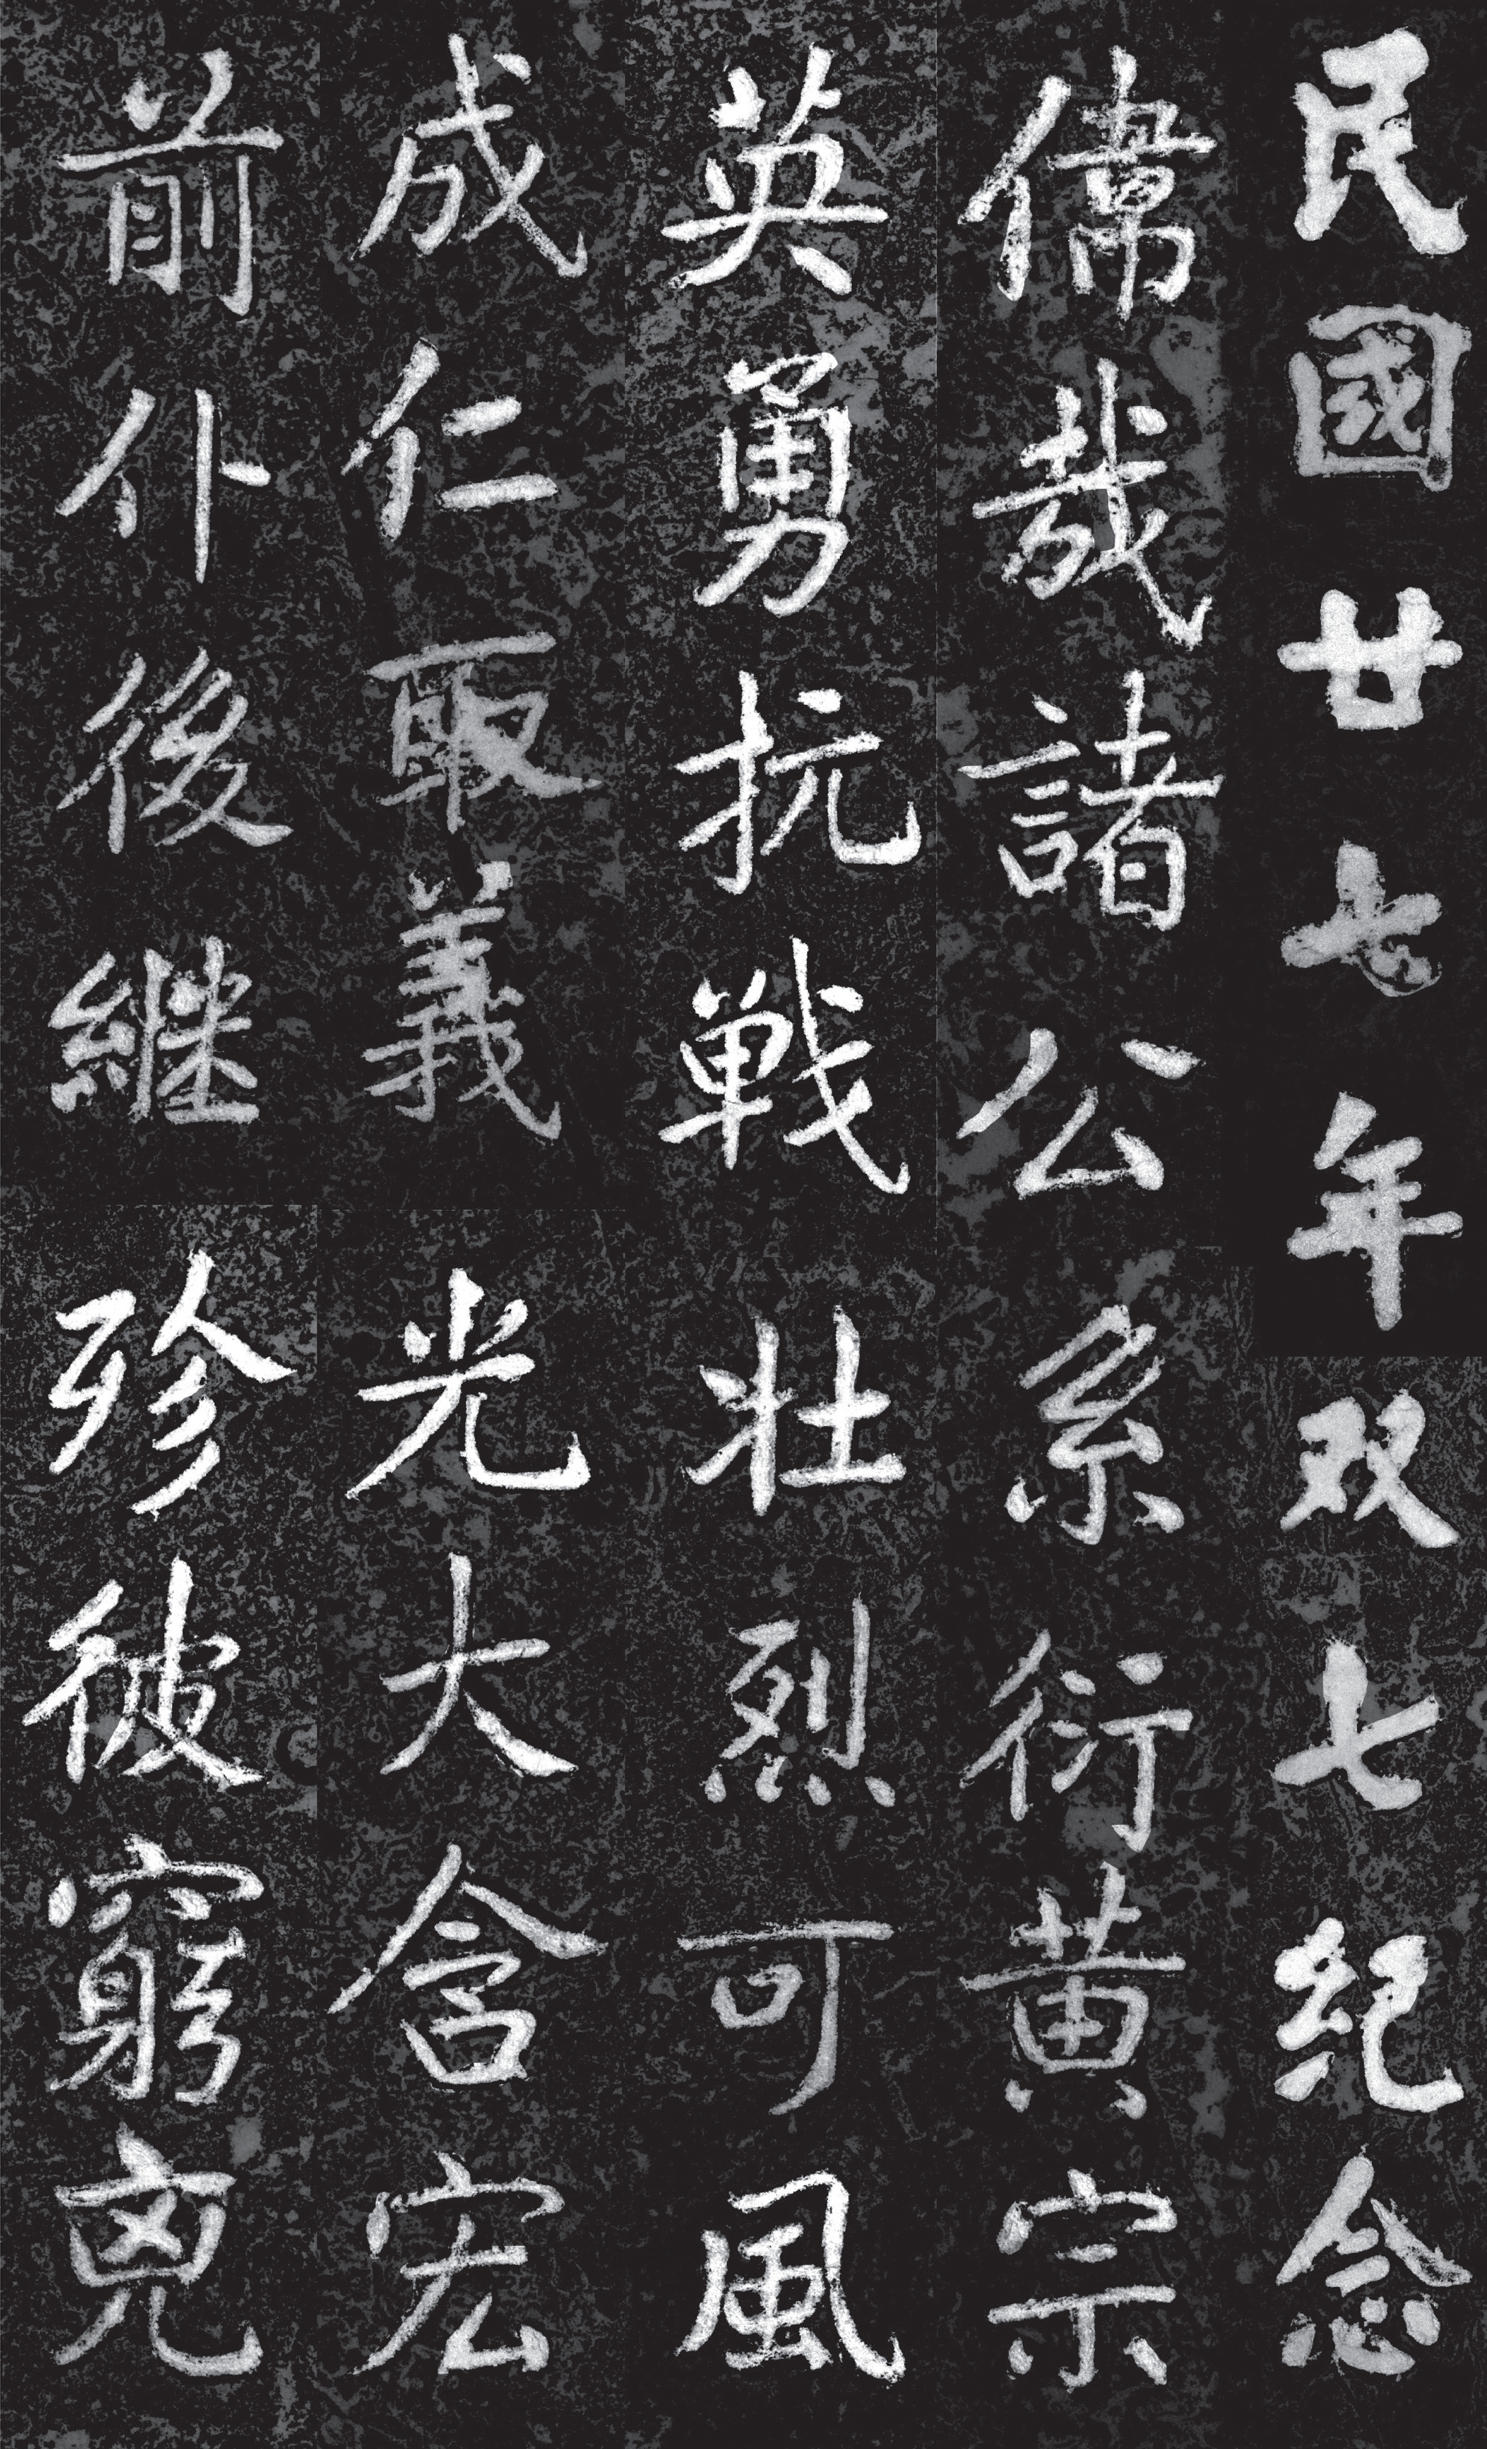 民國廿七年双七紀念
偉哉諸公系衍黄宗
英勇抗戦壮烈可風
成仁取義光大含宏
前仆後継殄彼窮兇